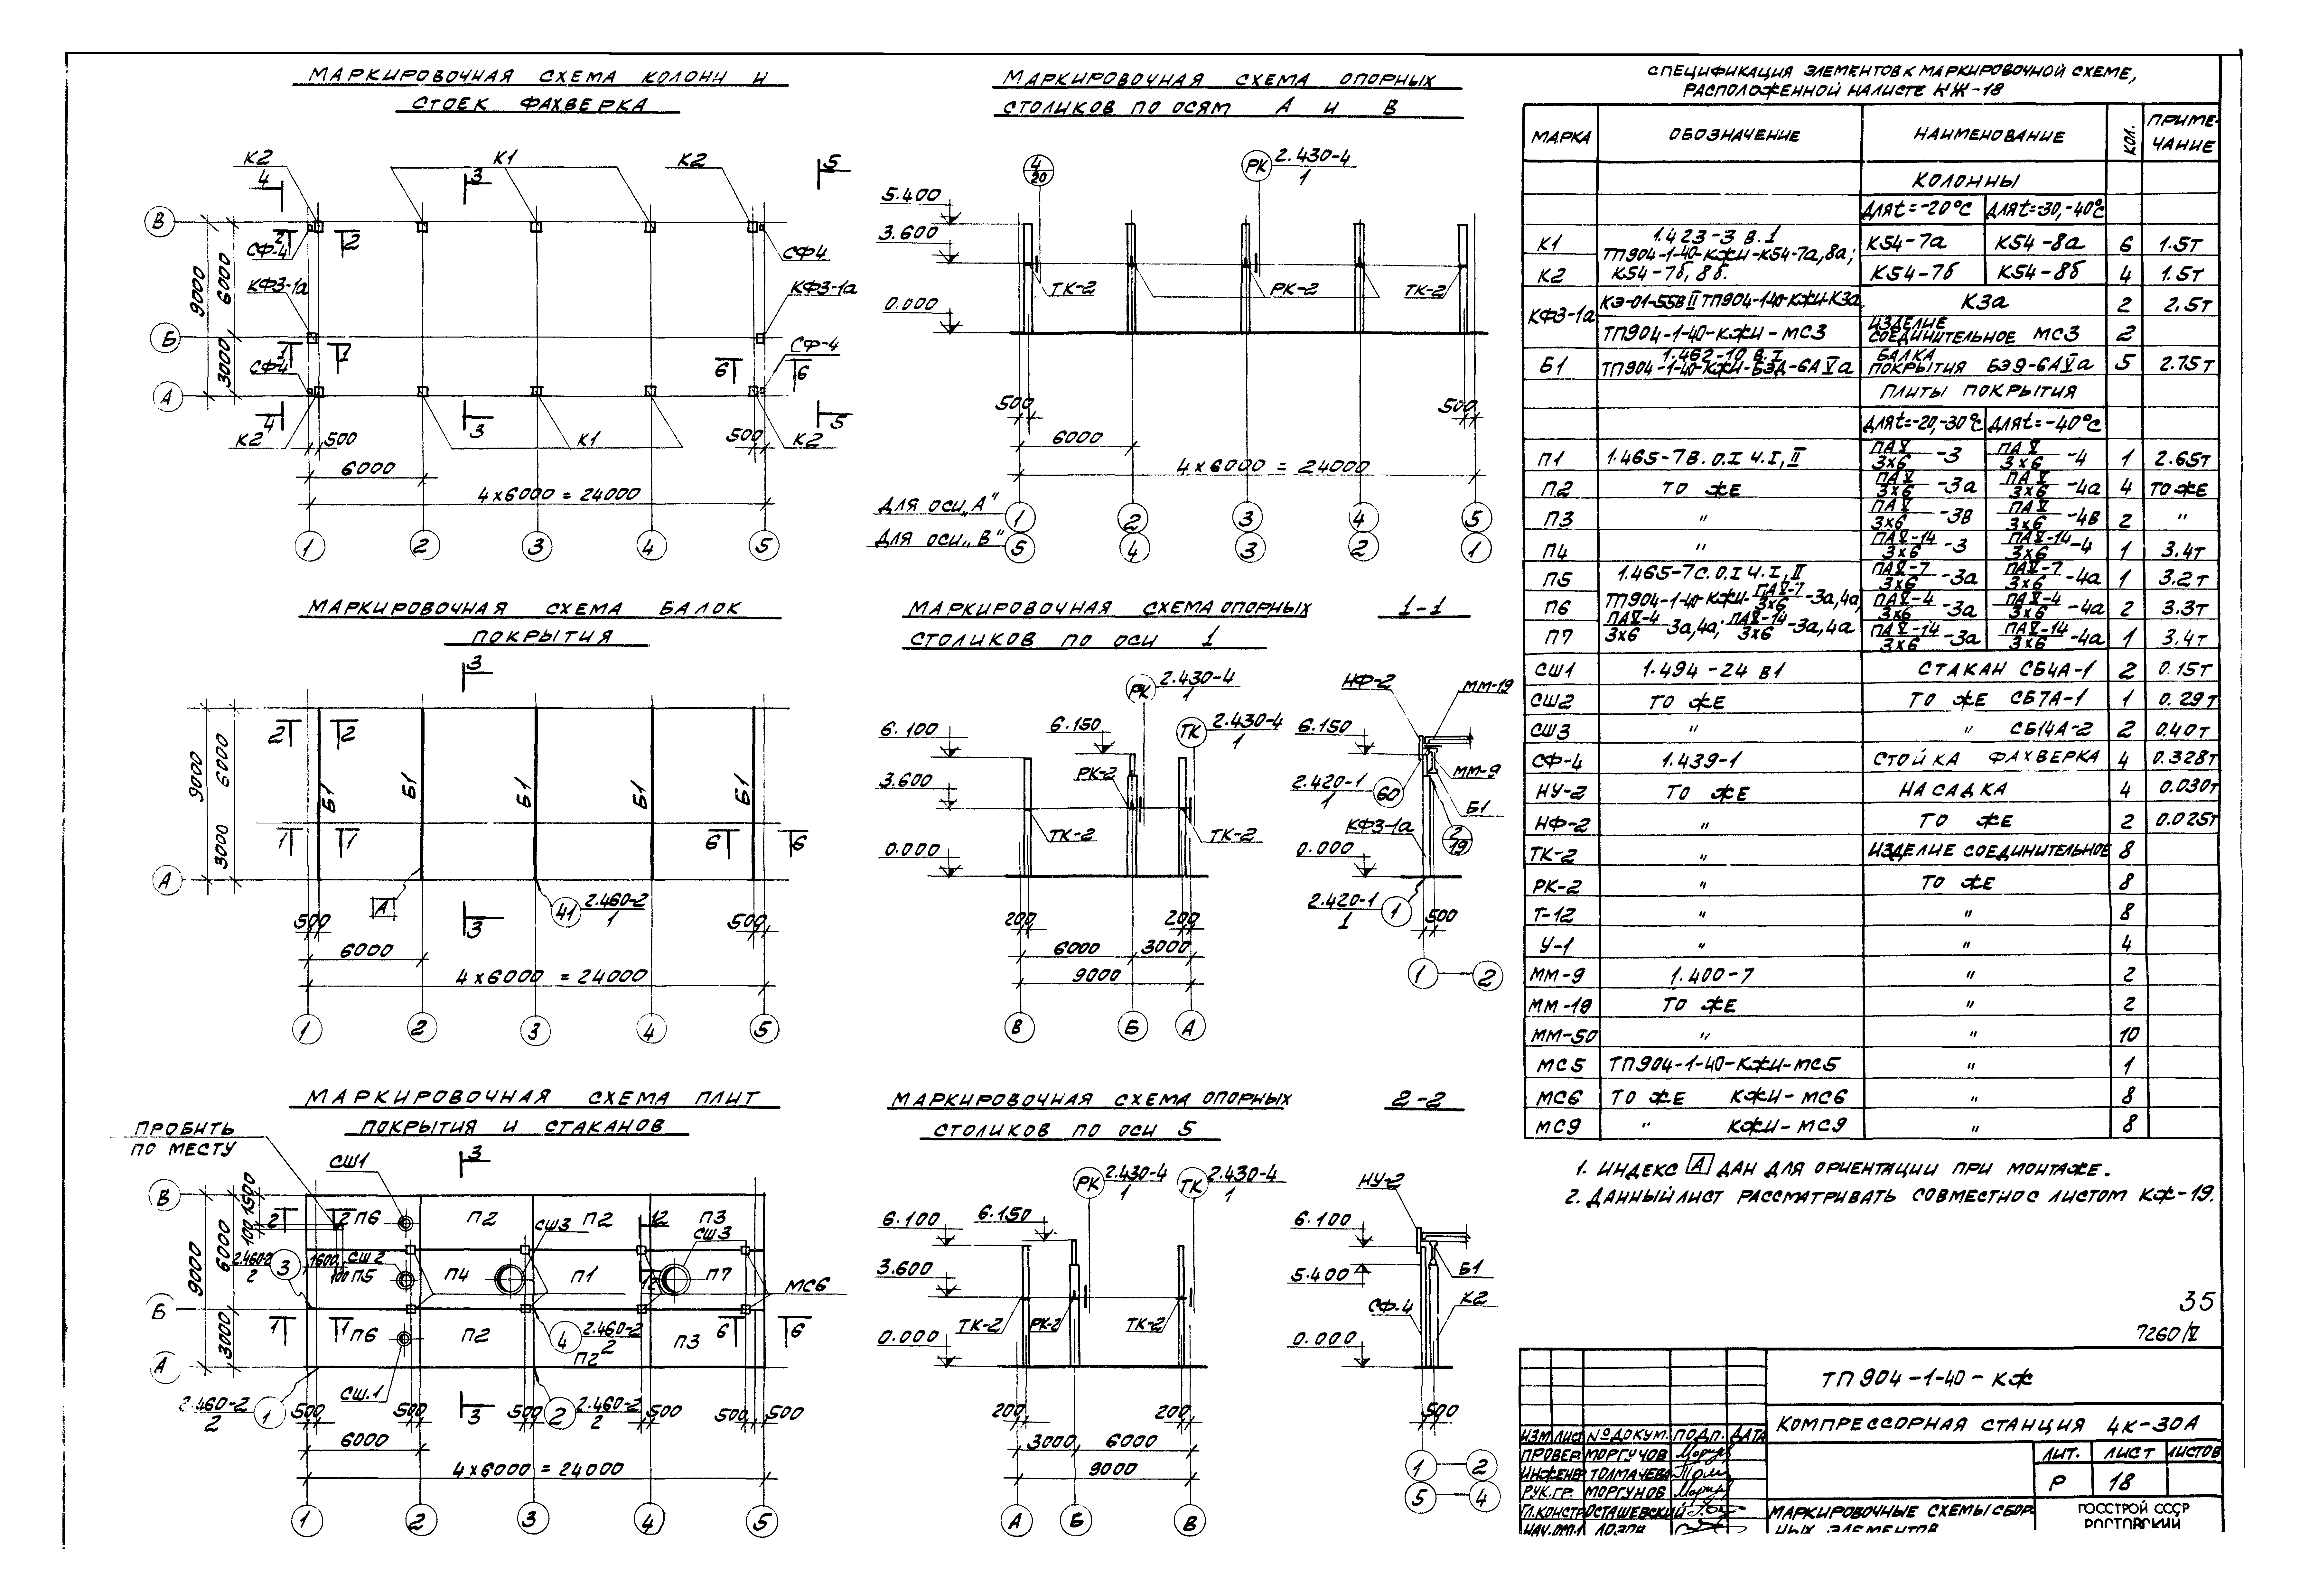 МАРКИРОВОЧНАЯ СХЕМА КОЛОНН И
СТОЕК ФАХВЕРКА
К2 К1 К2
4 3 5
В
2 2
СФ-4 СФ4
КФЗ-1а КФЗ-1а
9000 6000 3000
Б
1 1
СФ4 СФ-4
6 6
А
4 3 5
К2 500 К1 500 К2
6000
4×6000=24000
1 2 3 4 5
МАРКИРОВОЧНАЯ СХЕМА БАЛОК
ПОКРЫТИЯ
3
2 2
9000 6000 3000
Б1 Б1 Б1 Б1 Б1
1 1 6 6
А
А 3 41 2.460-2
1
500 500
6000
4×6000=24000
1 2 3 4 5
МАРКИРОВОЧНАЯ СХЕМА ПЛИТ
ПОКРЫТИЯ И СТАКАНОВ
ПРОБИТЬ
ПО МЕСТУ
СШ1 3
В
100 1500
2 2 П6 П2 СШ3 П2 12 П3
СШ3
9000 6000 3000
2.460-2
2
3 1600 СШ2
100 П5 П4 П1 12 П7
МС6
Б
1 1 П6 П2 4 2.460-2
2
П2 П3 6 6
А
СШ.1
2.460-2
2
1 500 500 3 500 2 2.460-2
2
500 500 500
6000
4×6000=24000
1 2 3 4 5
МАРКИРОВОЧНАЯ СХЕМА ОПОРНЫХ
СТОЛИКОВ ПО ОСЯМ А И В
4
20
РК 2.430-4
1
5.400
3.600
ТК-2 РК-2 ТК-2
0.000
500 500
6000
4×6000=24000
ДЛЯ ОСИ „А" 1 2 3 4 5
ДЛЯ ОСИ „В" 5 4 3 2 1
МАРКИРОВОЧНАЯ СХЕМА ОПОРНЫХ
СТОЛИКОВ ПО ОСИ 1
РК 2.430-4
1
6.100 6.150 ТК 2.430-4
1
3.600 РК-2
ТК-2 ТК-2
0.000
200 200
6000 3000
9000
В Б А
1-1
НФ-2 ММ-19
6.150
2.420-1
1
60 ММ-9
Б1
КФЗ-1а
2
19
0.000
2.420-1
1
1 500
1 2
МАРКИРОВОЧНАЯ СХЕМА ОПОРНЫХ
СТОЛИКОВ ПО ОСИ 5
РК 2.430-4
1
ТК 2.430-4
1
6.100 6.150
3.600
ТК-2 РК-2 ТК-2
0.000
200 200
3000 6000
9000
А Б В
2-2
НУ-2
6.100
5.400 Б1
СФ.4 К2
0.000
500
1 2
5 4
СПЕЦИФИКАЦИЯ ЭЛЕМЕНТОВ К МАРКИРОВОЧНОЙ СХЕМЕ,
РАСПОЛОЖЕННОЙ НА ЛИСТЕ КЖ-18
МАРКА ОБОЗНАЧЕНИЕ НАИМЕНОВАНИЕ КОЛ. ПРИМЕ-
ЧАНИЕ
КОЛОННЫ
ДЛЯ t=-20°С ДЛЯ t=-30,-40°С
К1 1.423-3 В.1 К54-7а К54-8а 6 1.5т
ТП904-1-40-КЖИ-К54-7а,8а;
К2 К54-7б,8б. К54-7б К54-8б 4 1.5т
КФЗ-1а КЭ-01-55 В II ТП904-1-40-КЖИ-К3а. К3а 2 2.5т
ТП904-1-40-КЖИ-МС3 ИЗДЕЛИЕ
СОЕДИНИТЕЛЬНОЕ МС3 2
Б1 1.462-10 В.I
ТП904-1-40-КЖИ-БЭД-6АVа БАЛКА
ПОКРЫТИЯ БЭ9-6АVа 5 2.75т
ПЛИТЫ ПОКРЫТИЯ
ДЛЯ t=-20,-30°С ДЛЯ t=-40°С
П1 1.465-7 В.0.I Ч.I,II ПАV/3×6-3 ПАV/3×6-4 1 2.65т
П2 ТО ЖЕ ПАV/3×6-3а ПАV/3×6-4а 4 ТО ЖЕ
П3 " ПАV/3×6-3в ПАV/3×6-4в 2 "
П4 " ПАV-14/3×6-3 ПАV-14/3×6-4 1 3.4т
П5 1.465-7 С.0.I Ч.I,II ПАV-7/3×6-3а ПАV-7/3×6-4а 1 3.2т
П6 ТП904-1-40-КЖИ-ПАV-7/3×6-3а,4а; ПАV-4/3×6-3а ПАV-4/3×6-4а 2 3.3т
П7 ПАV-4/3×6 3а,4а; ПАV-14/3×6-3а,4а ПАV-14/3×6-3а ПАV-14/3×6-4а 1 3.4т
СШ1 1.494-24 В1 СТАКАН СБ4А-1 2 0.15т
СШ2 ТО ЖЕ ТО ЖЕ СБ7А-1 1 0.29т
СШ3 " " СБ14А-2 2 0.40т
СФ-4 1.439-1 СТОЙКА ФАХВЕРКА 4 0.328т
НУ-2 ТО ЖЕ НАСАДКА 4 0.030т
НФ-2 " ТО ЖЕ 2 0.025т
ТК-2 " ИЗДЕЛИЕ СОЕДИНИТЕЛЬНОЕ 8
РК-2 " ТО ЖЕ 8
Т-12 " " 8
У-1 " " 4
ММ-9 1.400-7 " 2
ММ-19 ТО ЖЕ " 2
ММ-50 " " 10
МС5 ТП904-1-40-КЖИ-МС5 " 1
МС6 ТО ЖЕ КЖИ-МС6 " 8
МС9 " КЖИ-МС9 " 8
1. ИНДЕКС А ДАН ДЛЯ ОРИЕНТАЦИИ ПРИ МОНТАЖЕ.
2. ДАННЫЙ ЛИСТ РАССМАТРИВАТЬ СОВМЕСТНО С ЛИСТОМ КЖ-19.
35
7260/V
ТП904-1-40-КЖ
КОМПРЕССОРНАЯ СТАНЦИЯ 4К-30А
ИЗМ ЛИСТ № ДОКУМ. ПОДП. ДАТА
ПРОВЕР МОРГУЧОВ
ИНЖЕНЕР ТОЛМАЧЕВА
РУК.ГР. МОРГУНОВ
ГЛ.КОНСТР ОСТАШЕВСКИЙ
ЛИТ. ЛИСТ ЛИСТОВ
Р 18
МАРКИРОВОЧНЫЕ СХЕМЫ СБОР-
НЫХ ЭЛЕМЕНТОВ
ГОССТРОЙ СССР
РОСТОВСКИЙ